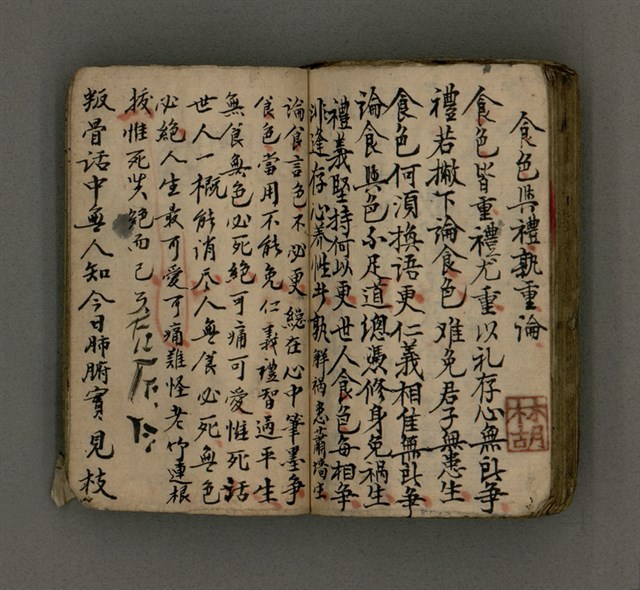 食色與禮孰重論
食色皆重禮尤重以礼存心無所争
禮若撇下論食色难免君子無患生
食色何須換語更仁義相隹無所争
論食與色不足道總憑修身免禍生
禮義堅持何以更世人食色每相争
逢存心养性其孰解禍患蕭墻生
論食言色不必更總在心中筆墨争
食色當用不能免仁義禮智過平生
無食無色必死絕可痛可愛惟死話
世人一概能消尽人無食必死無色
必絕人生最可愛可痛難怪老竹連根
拔惟死失絕而已
叛骨話中無人知今日肺腑實見枝
林胡